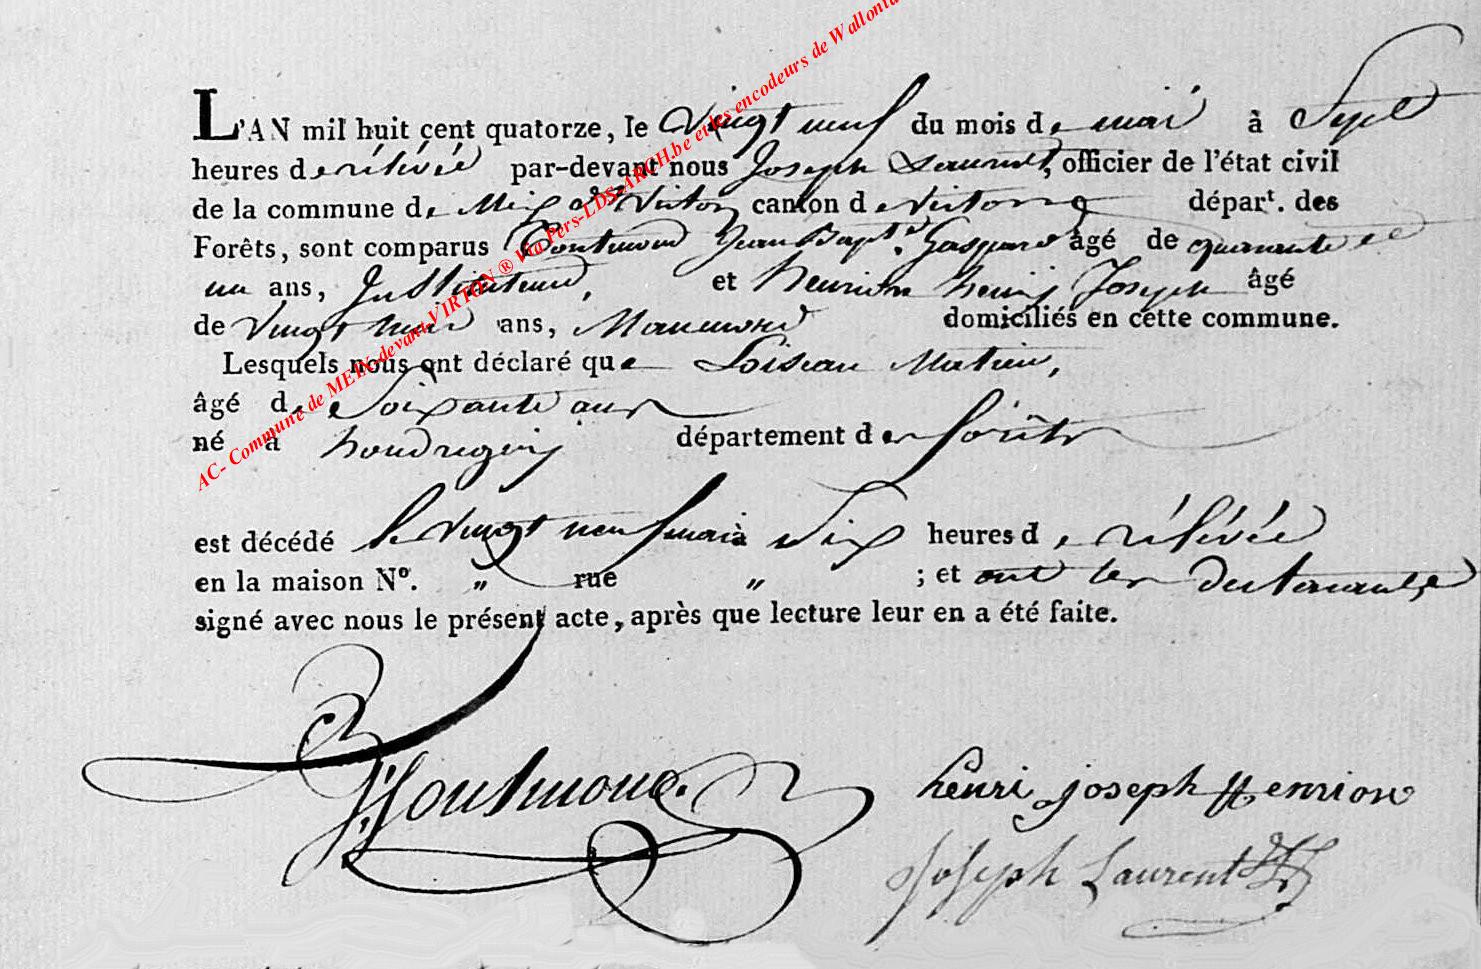 L'AN mil huit cent quatorze, le vingt neuf du mois de mai à Sept
heures de rélévée par-devant nous Joseph Laurent, officier de l'état civil
de la commune de Meix dt Virton canton de virton départ. des
Forêts, sont comparus Jean Bapte. Gaspard âgé de quarante et
un ans, Instituteur, et henrion henri Joseph âgé
de vingt huit ans, Manœuvre domiciliés en cette commune.
Lesquels nous ont déclaré que Loiseau Matieu,
âgé de Soixante ans
né à houdrigny département des forêts
est décédé le vingt neuf mai à Six heures de rélévée
en la maison N°. „ rue „ ; et ont les
signé avec nous le présent acte, après que lecture leur en a été faite.
henri joseph Henrion
Joseph Laurent
AC- Commune de MEIX-devant-VIRTON ® via Pers-LDS-ARCH.be et les encodeurs de Wallonie